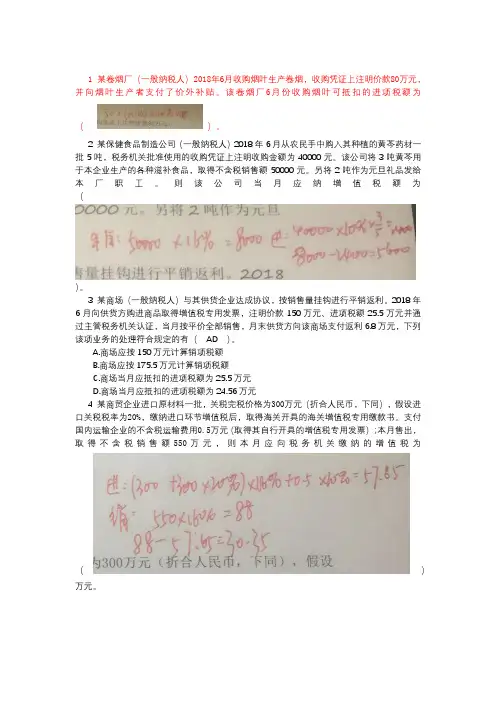 1 某卷烟厂（一般纳税人）2018年6月收购烟叶生产卷烟，收购凭证上注明价款80万元，
并向烟叶生产者支付了价外补贴。该卷烟厂6月份收购烟叶可抵扣的进项税额为
（ ）。
2 某保健食品制造公司（一般纳税人）2018年6月从农民手中购入其种植的黄芩药材一
批5吨，税务机关批准使用的收购凭证上注明收购金额为40000元。该公司将3吨黄芩用
于本企业生产的各种滋补食品，取得不含税销售额50000元。另将2吨作为元旦礼品发给
本厂职工。则该公司当月应纳增值税额为
（
0000元。另将2吨作为元旦
销: 50000×16%=8000 进: 40000×10%×3/5=2400
8000-2400=5600
量挂钩进行平销返利。2018
）。
3 某商场（一般纳税人）与其供货企业达成协议，按销售量挂钩进行平销返利。2018年
6月向供货方购进商品取得增值税专用发票，注明价款150万元、进项税额25.5万元并通
过主管税务机关认证，当月按平价全部销售，月末供货方向该商场支付返利6.8万元，下列
该项业务的处理符合规定的有（ AD ）。
A.商场应按150万元计算销项税额
B.商场应按175.5万元计算销项税额
C.商场当月应抵扣的进项税额为25.5万元
D.商场当月应抵扣的进项税额为24.56万元
4 某商贸企业进口原材料一批，关税完税价格为300万元（折合人民币，下同），假设进
口关税税率为20%，缴纳进口环节增值税后，取得海关开具的海关增值税专用缴款书。支付
国内运输企业的不含税运输费用0.5万元（取得其自行开具的增值税专用发票）;本月售出，
取得不含税销售额550万元，则本月应向税务机关缴纳的增值税为
进: (300+300×20%)×16%+0.5×10%=57.65
销: 550×16%=88
88-57.65=30.35
为300万元（折合人民币，下同），假设
（ ）
万元。